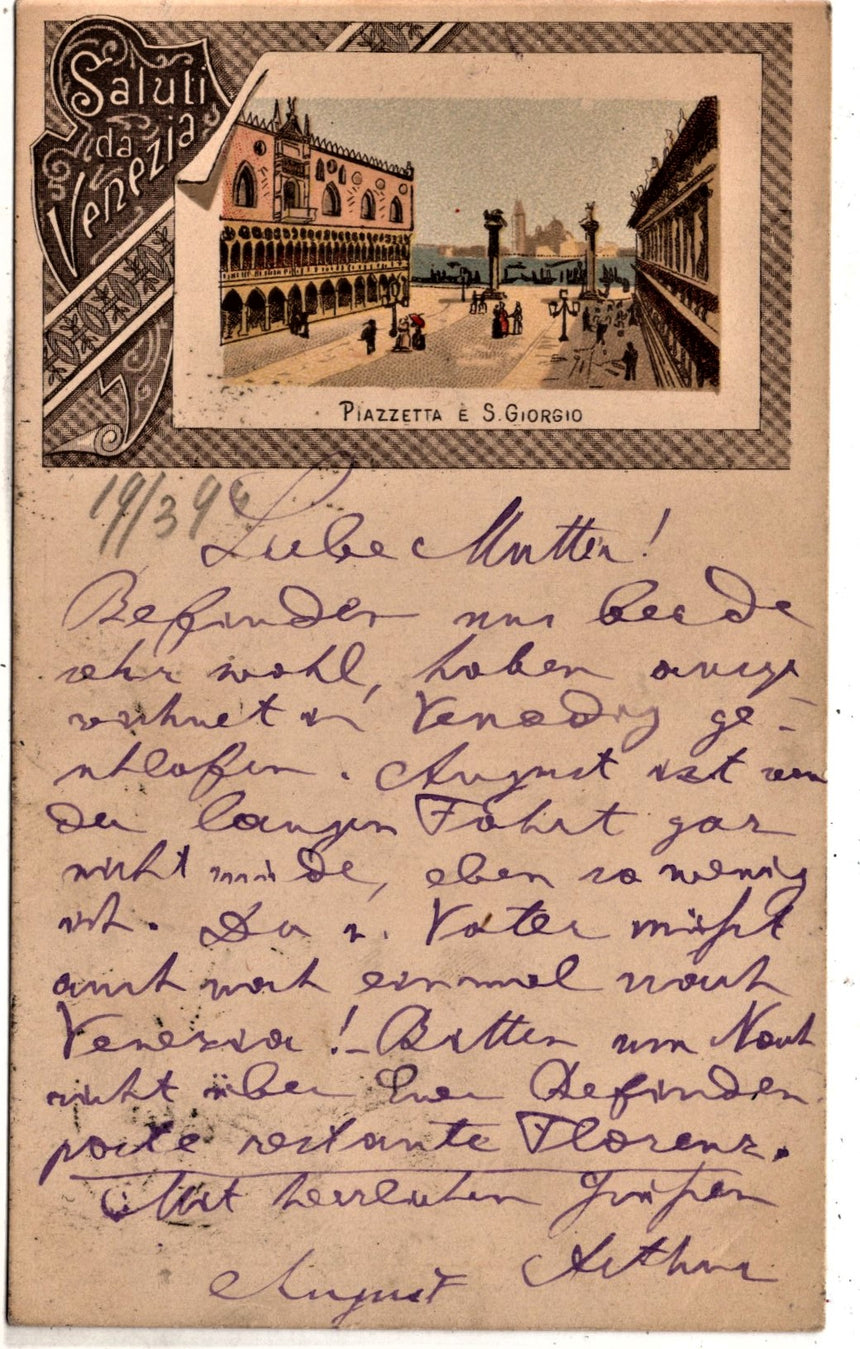 Saluti
da
Venezia
PIAZZETTA E S. GIORGIO
19/3 9
Liebe Mutter!
Befinden uns beide
sehr wohl, haben ausge
zeichnet in Venedig ge-
schlafen. August ist von
der langen Fahrt gar
nicht müde, eben so wenig
ich. Du u. Vater müßt
auch noch einmal nach
Venezia! - Bitten um Nach
richt über Euer Befinden
poste restante Florenz.
Mit herzlichen Grüßen
Arthur
August